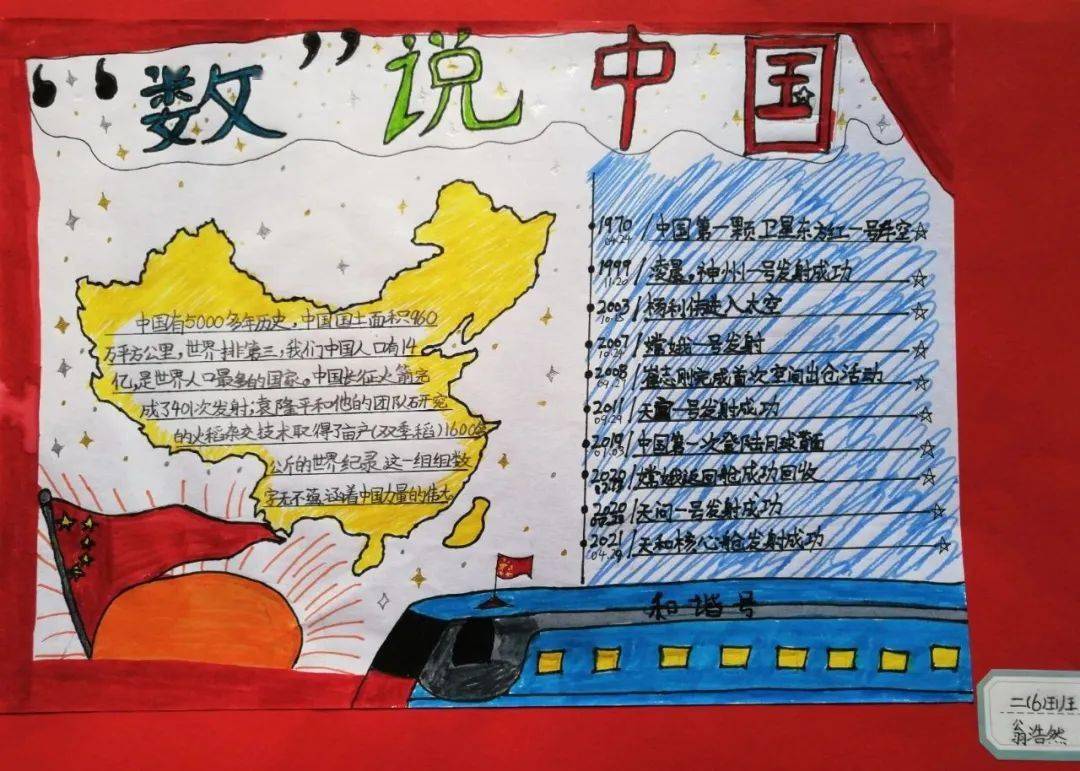 “数”说中国
中国有5000多年历史，中国国土面积960
万平方公里，世界排第三，我们中国人口有14
亿，是世界人口最多的国家。中国长征火箭完
成了401次发射；袁隆平和他的团队研究
的火稻杂交技术取得了亩产（双季稻）1600
公斤的世界纪录 这一组组数
字无不蕴涵着中国力量的伟大。
1970 / 中国第一颗卫星东方红一号升空
04.24
1999 / 凌晨，神州1一号发射成功
11.20
2003 / 杨利伟进入太空
10.15
2007 / 嫦娥一号发射
10.24
2008 / 翟志刚完成首次空间出仓活动
09.27
2011 / 天宫一号发射成功
09.29
2019 / 中国第一次登陆月球背面
01.03
2020 / 嫦娥返回舱成功回收
2020 / 天问一号发射成功
2021 / 天和核心舱发射成功
04.29
和谐号
二(6)班
翁浩然